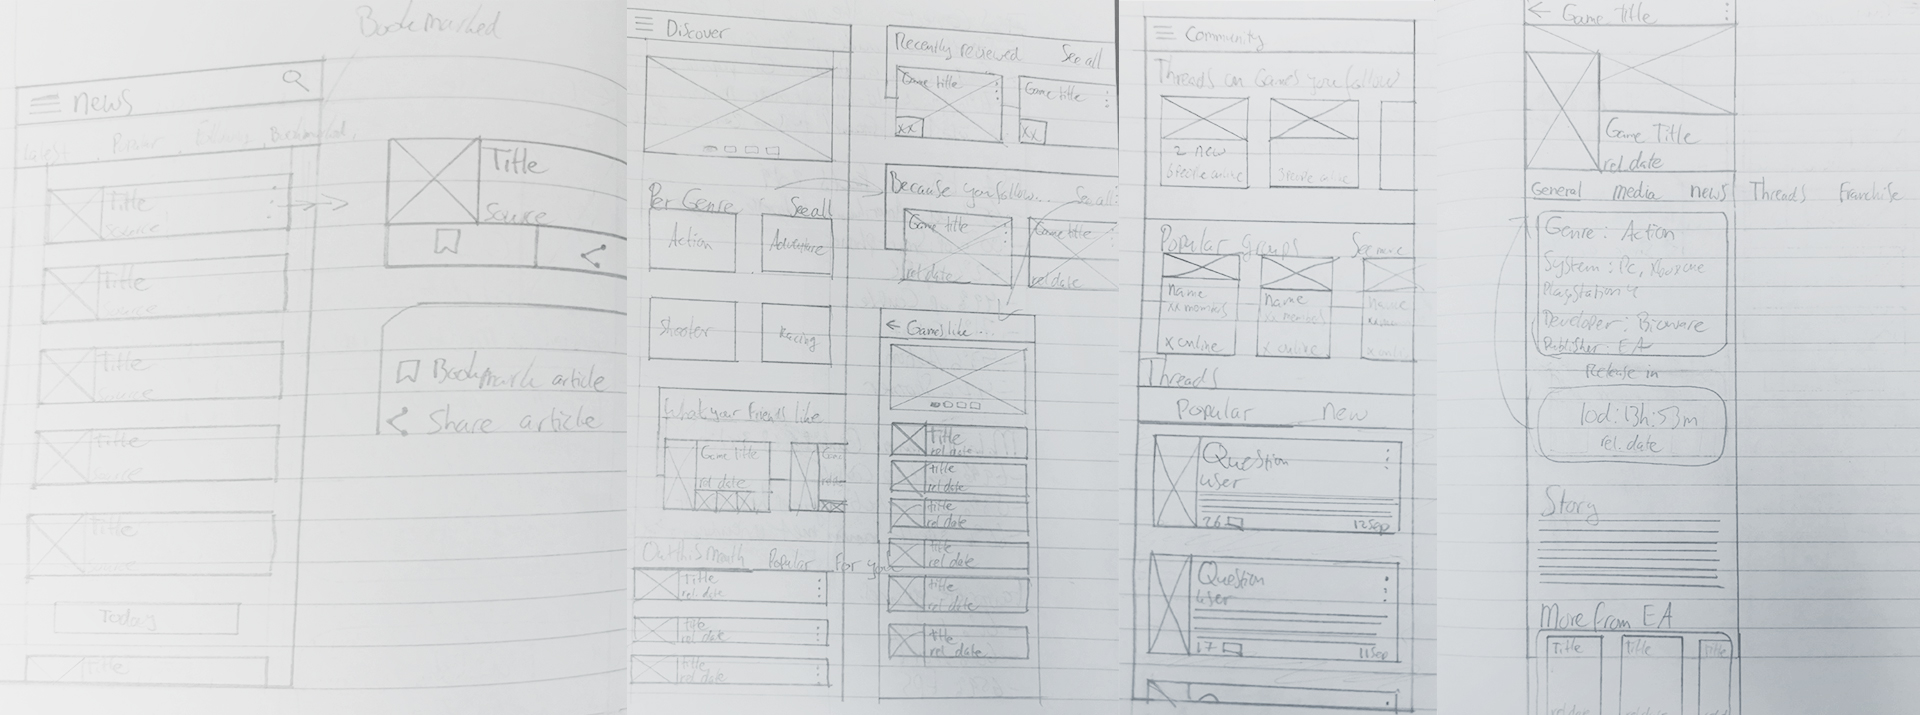 Bookmarked
news
Latest Bookmarked
Title
Source
Title
Source
Title
Source
Title
Source
Title
Source
Today
Title
Title
Source
Bookmark article
Share article
Discover
Per Genre See all
Action
Adventure
Shooter
Racing
What your friends like
Game title
rel date
Out this month Popular For you
Title
rel. date
title
rel. date
title
rel. date
Recently reviewed See all
Game title
XX
Game title
XX
Because you follow... See all
Game title
rel. date
Game title
rel date
Games like ...
Title
rel date
title
rel. date
title
rel. date
title
rel. date
title
rel. date
title
rel. date
Community
Threads on Games you follow
2 new
Popular groups See more
name
xx members
x online
name
xx members
x online
name
x online
Threads
Popular new
Question
User
26
12 Sep
Question
User
17
11 Sep
Game title
Game Title
rel. date
General media news Threads Franchise
Genre : Action
System : PC, Xbox one
Playstation 4
Developer : Bioware
Publisher : EA
Release in
10d : 13h : 53m
rel. date
Story
More from EA
Title
Title
Title
rel. date
rel. date